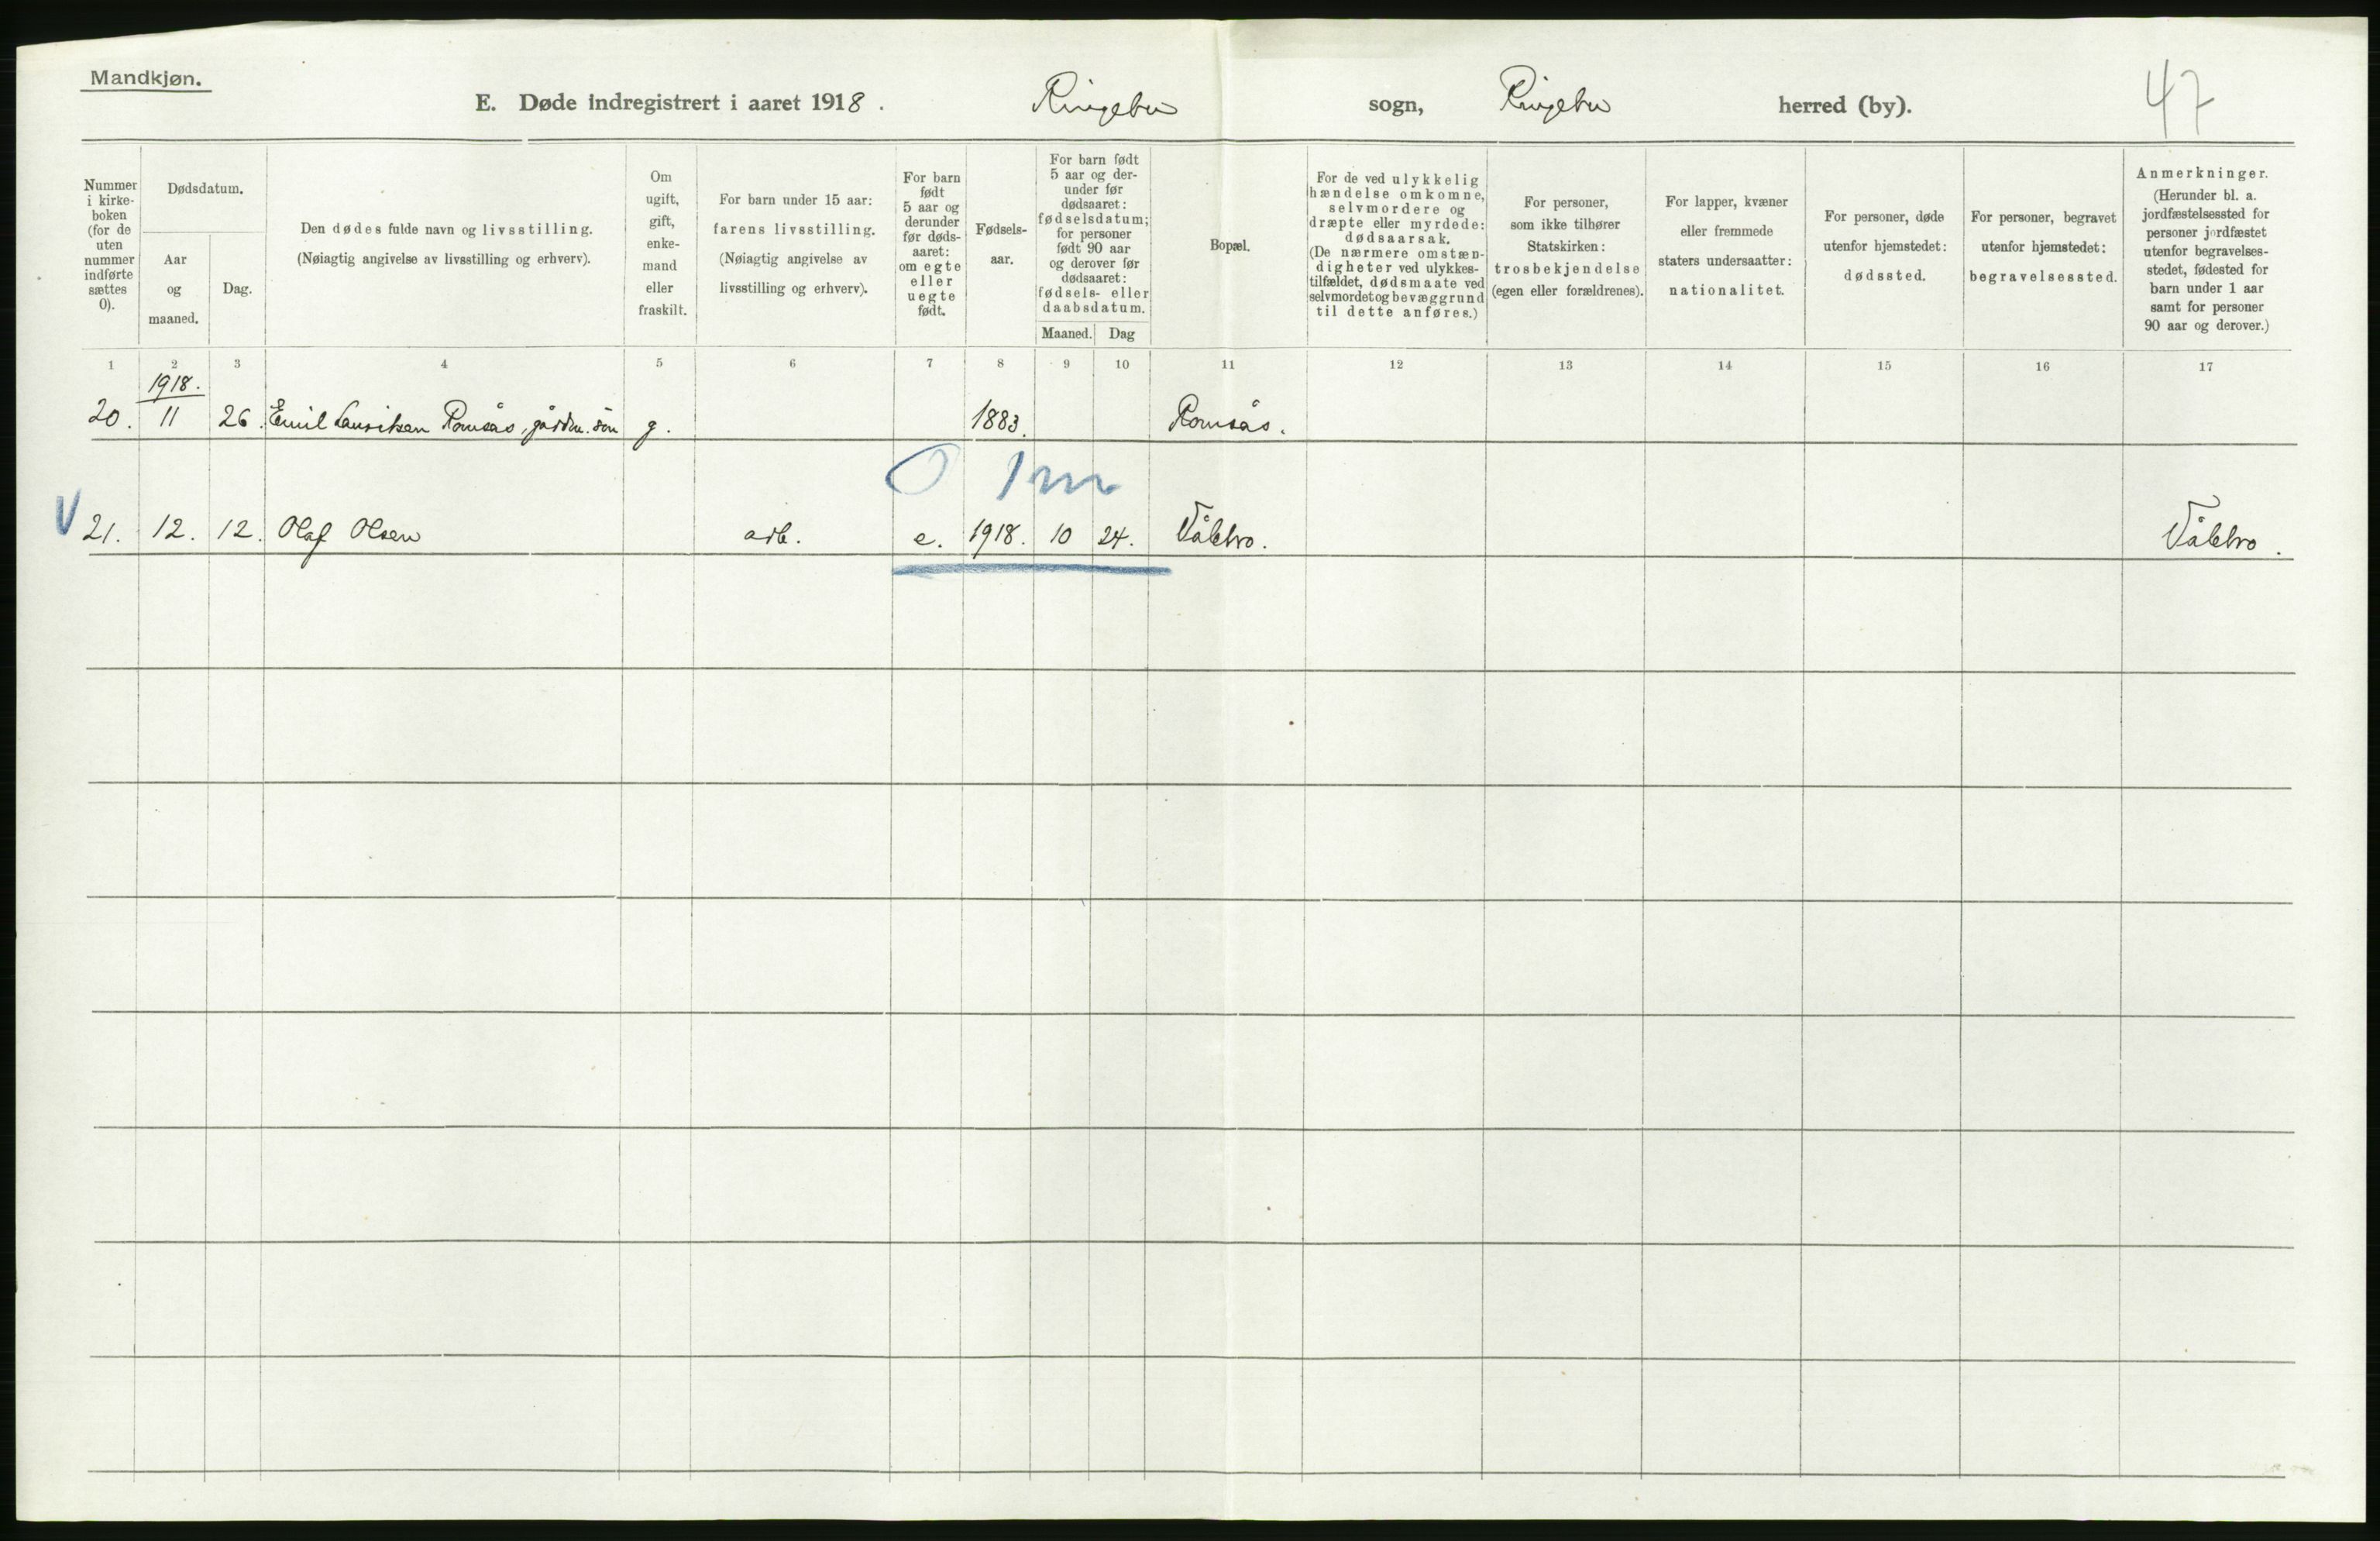 Mandkjøn.
E. Døde indregistrert i aaret 1918. Ringebu sogn, Ringebu herred (by). 47
Nummer i kirke-boken (for de uten nummer indførte sættes 0).
Dødsdatum.
Aar og maaned.
Dag.
Den dødes fulde navn og livsstilling.
(Nøiagtig angivelse av livsstilling og erhverv).
Om ugift, gift, enke-mand eller fraskilt.
For barn under 15 aar:
farens livsstilling.
(Nøiagtig angivelse av
livsstilling og erhverv).
For barn født 5 aar og derunder før døds-aaret: om egte eller uegte født.
Fødsels-aar.
For barn født 5 aar og der-under før dødsaaret: fødselsdatum; for personer født 90 aar og derover før dødsaaret: fødsels- eller daabsdatum.
Maaned. Dag
Bopæl.
For de ved ulykkelig hændelse omkomne, selvmordere og dræpte eller myrdede: dødsaarsak. (De nærmere omstæn-digheter ved ulykkes-tilfældet, dødsmaate ved selvmordet og bevæggrund til dette anføres.)
For personer, som ikke tilhører Statskirken: trosbekjendelse (egen eller forældrenes).
For lapper, kvæner eller fremmede staters undersaatter: nationalitet.
For personer, døde utenfor hjemstedet: dødssted.
For personer, begravet utenfor hjemstedet: begravelsessted.
Anmerkninger.
(Herunder bl. a. jordfæstelsessted for personer jordfæstet utenfor begravelses-stedet, fødested for barn under 1 aar samt for personer 90 aar og derover.)
1 2 3 4 5 6 7 8 9 10 11 12 13 14 15 16 17
1918.
20. 11 26. Emil Lauritsen Romsås, gårdm. søn g. 1883. Romsås.
0 1 m
V 21. 12. 12. Olaf Olsen arb. e. 1918. 10 24. Vålebro. Vålebro.